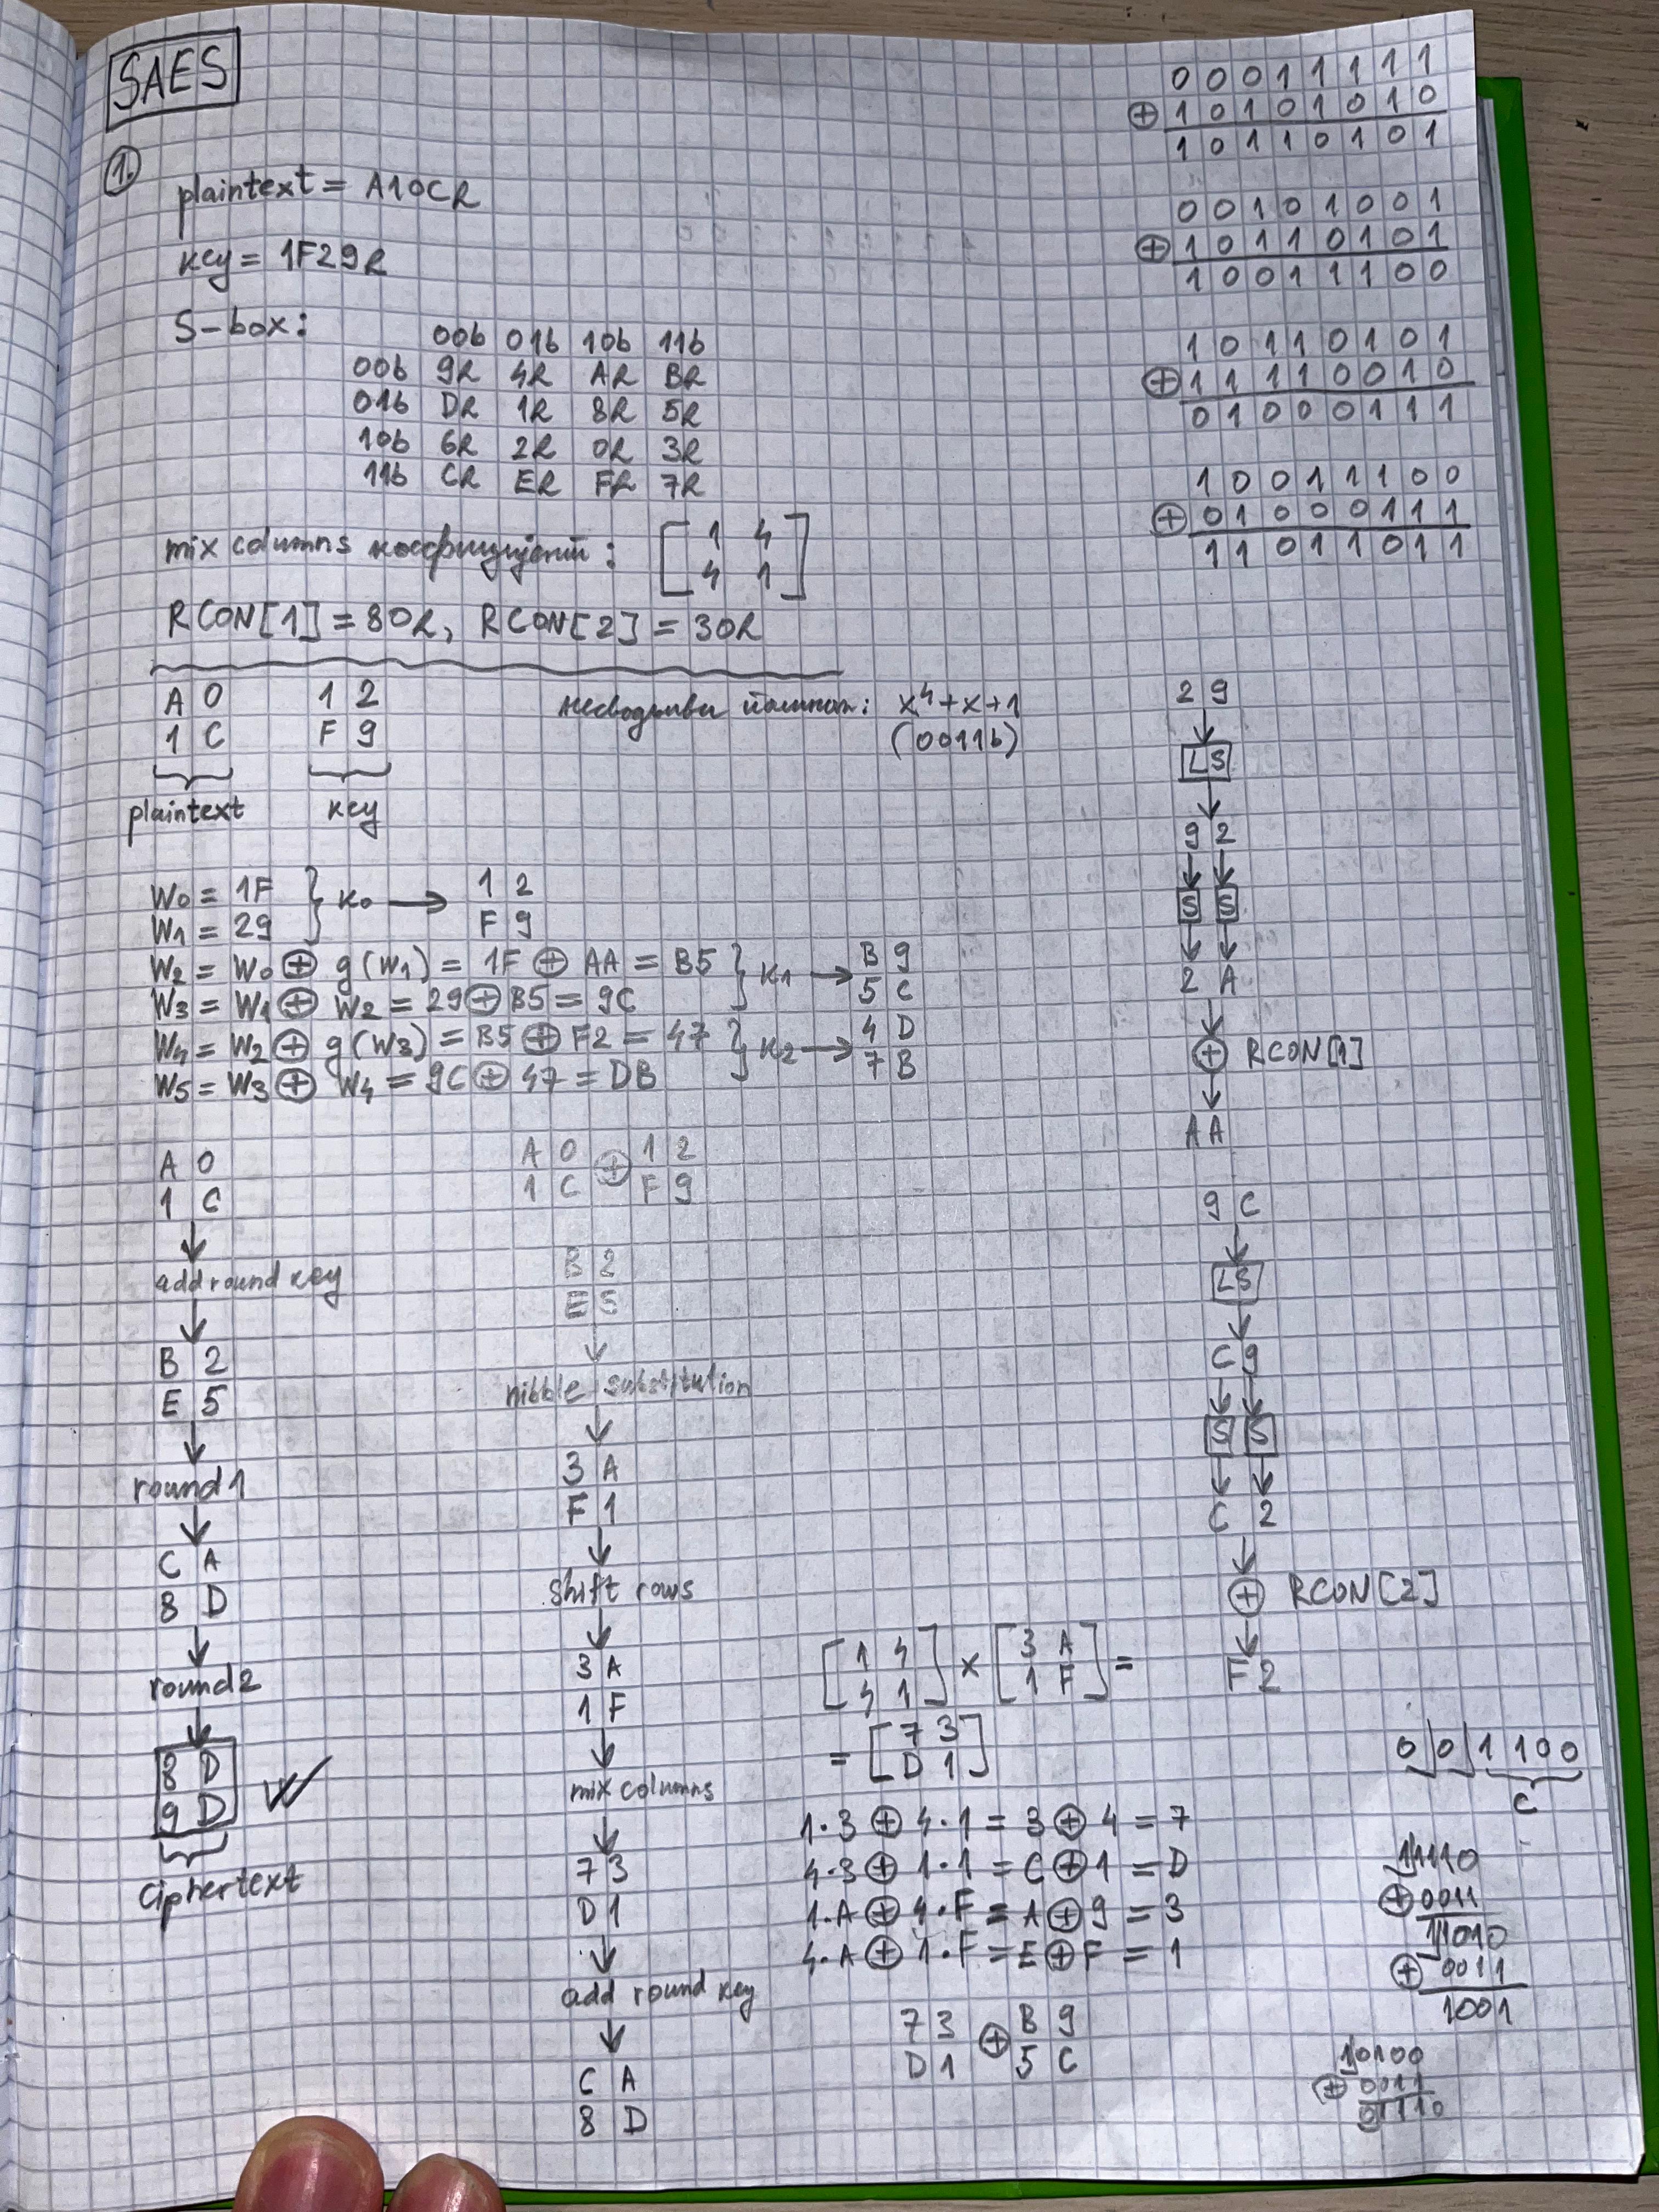 SAES
1.
plaintext = A10Ch
key = 1F29h
S-box:
00b 01b 10b 11b
00b 9h 4h Ah Bh
01b Dh 1h 8h 5h
10b 6h 2h 0h 3h
11b Ch Eh Fh 7h
mix columns коефицијенти: [1 4
4 1]
RCON[1] = 80h, RCON[2] = 30h
A 0 1 2
1 C F 9
plaintext key
несводљиви полином: x⁴+x+1
(0011b)
W0 = 1F } K0 → 1 2
W1 = 29 F 9
W2 = W0 ⊕ g(W1) = 1F ⊕ AA = B5 } K1 → B 9
W3 = W1 ⊕ W2 = 29 ⊕ B5 = 9C 5 C
W4 = W2 ⊕ g(W3) = B5 ⊕ F2 = 47 } K2 → 4 D
W5 = W3 ⊕ W4 = 9C ⊕ 47 = DB 7 B
A 0
1 C
↓
add round key
↓
B 2
E 5
↓
round 1
↓
C A
8 D
↓
round 2
↓
8 D
9 D
ciphertext
A 0 ⊕ 1 2
1 C F 9
B 2
E 5
↓
nibble substitution
↓
3 A
F 1
↓
shift rows
↓
3 A
1 F
↓
mix columns
↓
7 3
D 1
↓
add round key
↓
C A
8 D
[1 4
4 1] × [3 A
1 F] =
= [7 3
D 1]
1·3 ⊕ 4·1 = 3 ⊕ 4 = 7
4·3 ⊕ 1·1 = C ⊕ 1 = D
1·A ⊕ 4·F = A ⊕ 9 = 3
4·A ⊕ 1·F = E ⊕ F = 1
7 3 ⊕ B 9
D 1 5 C
0 0 0 1 1 1 1 1
⊕ 1 0 1 0 1 0 1 0
1 0 1 1 0 1 0 1
0 0 1 0 1 0 0 1
⊕ 1 0 1 1 0 1 0 1
1 0 0 1 1 1 0 0
1 0 1 1 0 1 0 1
⊕ 1 1 1 1 0 0 1 0
0 1 0 0 0 1 1 1
1 0 0 1 1 1 0 0
⊕ 0 1 0 0 0 1 1 1
1 1 0 1 1 0 1 1
2 9
↓
LS
↓
9 2
↓ ↓
S S
↓ ↓
2 A
↓
⊕ RCON[1]
↓
AA
9 C
↓
LS
↓
C 9
↓ ↓
S S
↓ ↓
C 2
↓
⊕ RCON[2]
↓
F 2
0 0 1 1 0 0
C
11110
⊕ 0011
11010
⊕ 0011
1001
10100
⊕ 0011
01110